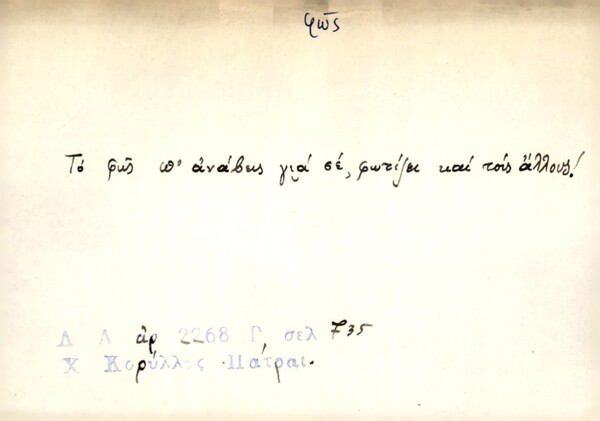 φῶς
Τό φῶς π' ἀνάβεις γιά σέ, φωτίζει καί τοὺς ἄλλους!
Λ Α ἀρ 2268 Γ, σελ 735
Χ Κορύλλος Πάτραι.